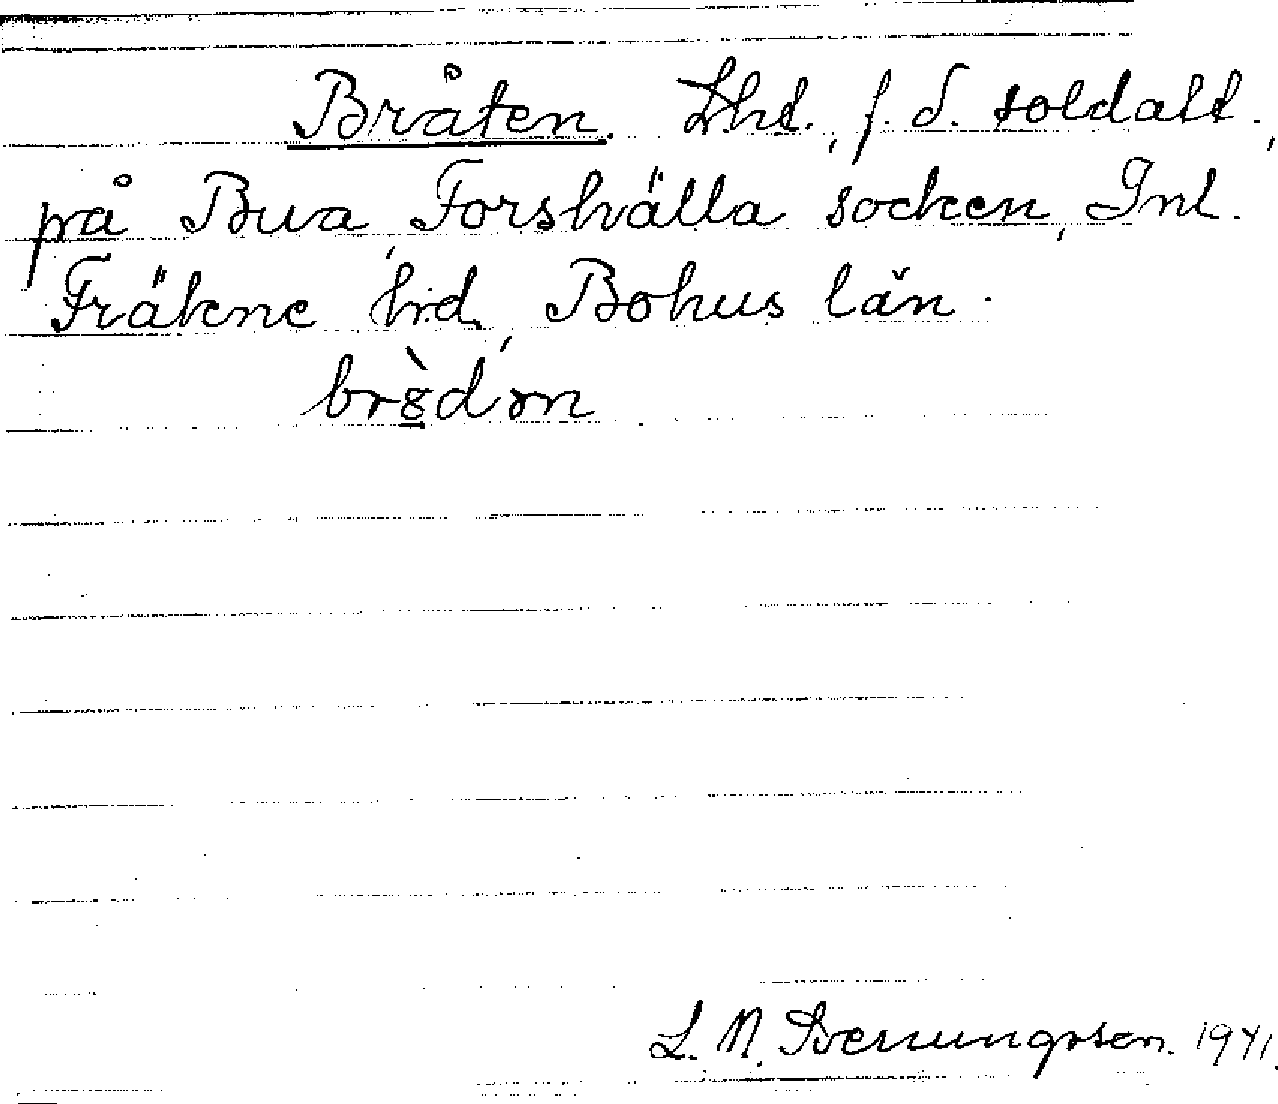 Bråten. Lht., f. d. soldatt.,
på Bua, Forshälla socken, Inl.
Fräkne hd, Bohus län.
br8̀d́ɷn
L. N. Svenungsson. 1941.